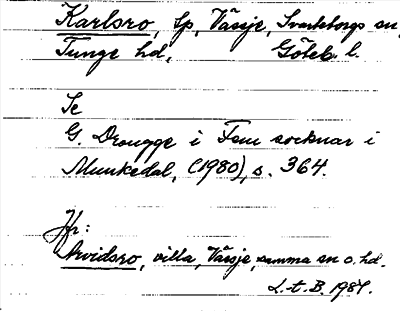 Karlsro, lp, Vässje, Svarteborgs sn,
Tunge hd, Göteb. l.
Se
G. Drougge i Fem socknar i
Munkedal, (1980), s. 364.
Jfr:
Arvidsro, villa, Vässje, samma sn o. hd.
L.-t. B. 1987.